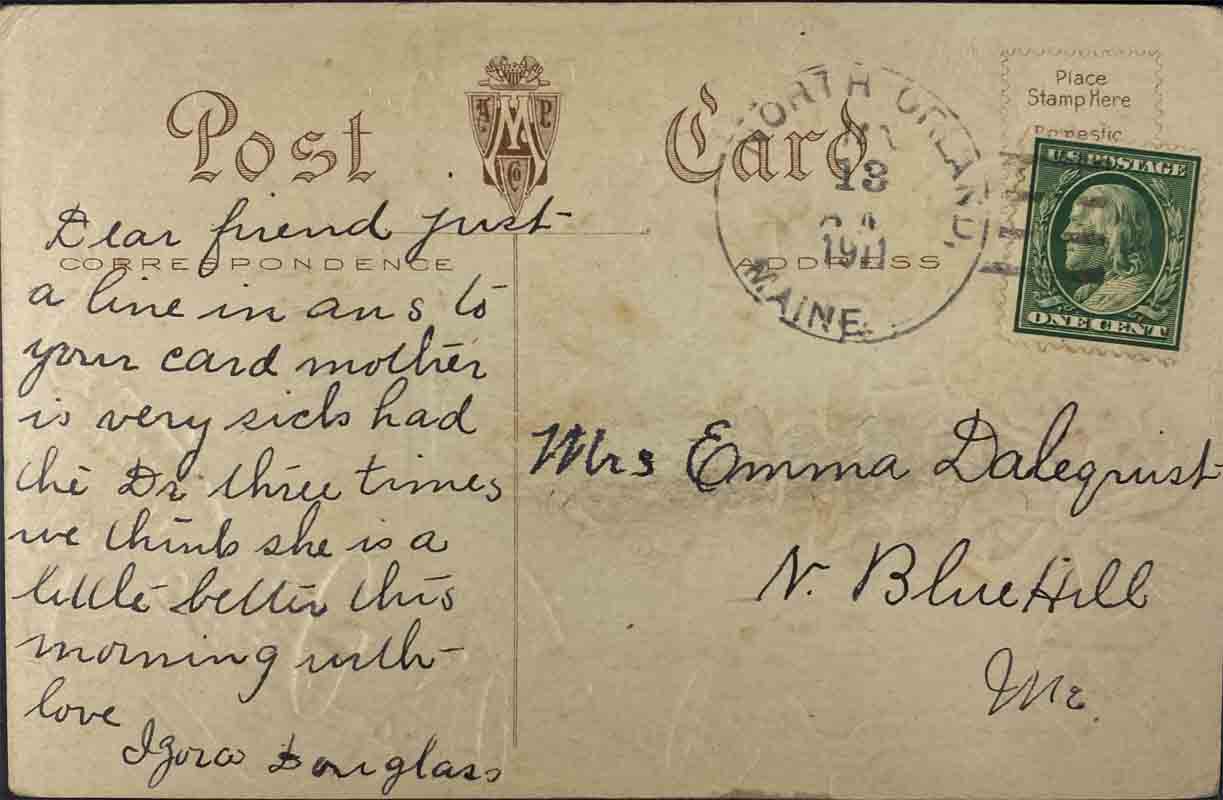 Post Card
A M P
Co
Place
Stamp Here
Domestic
NORTH ORLAND
13
1911
MAINE.
U.S. POSTAGE
ONE CENT
CORRESPONDENCE
ADDRESS
Dear friend just
a line in ans to
your card mother
is very sick had
the Dr three times
we think she is a
little better this
morning with
love
Douglass
Mrs Emma Daleqrist
N. Blue Hill
Me.